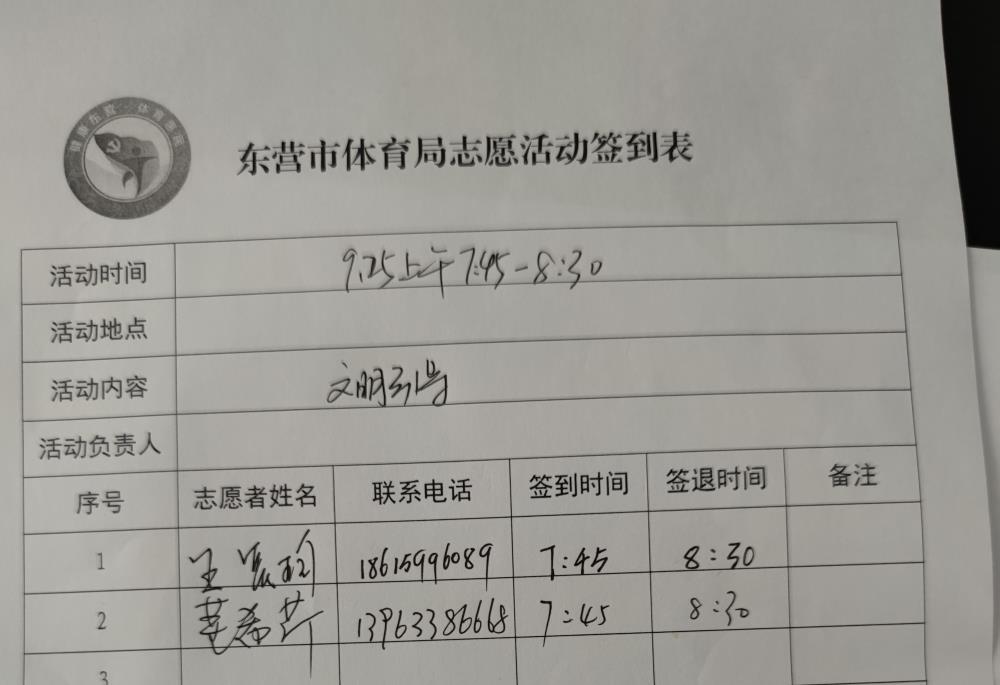 健康东营 体育惠民
东营市体育局志愿活动签到表
活动时间 9.25上午7:45-8:30
活动地点
活动内容 文明引导
活动负责人
序号 志愿者姓名 联系电话 签到时间 签退时间 备注
1 王 18615996089 7:45 8:30
2 13963386668 7:45 8:30
3